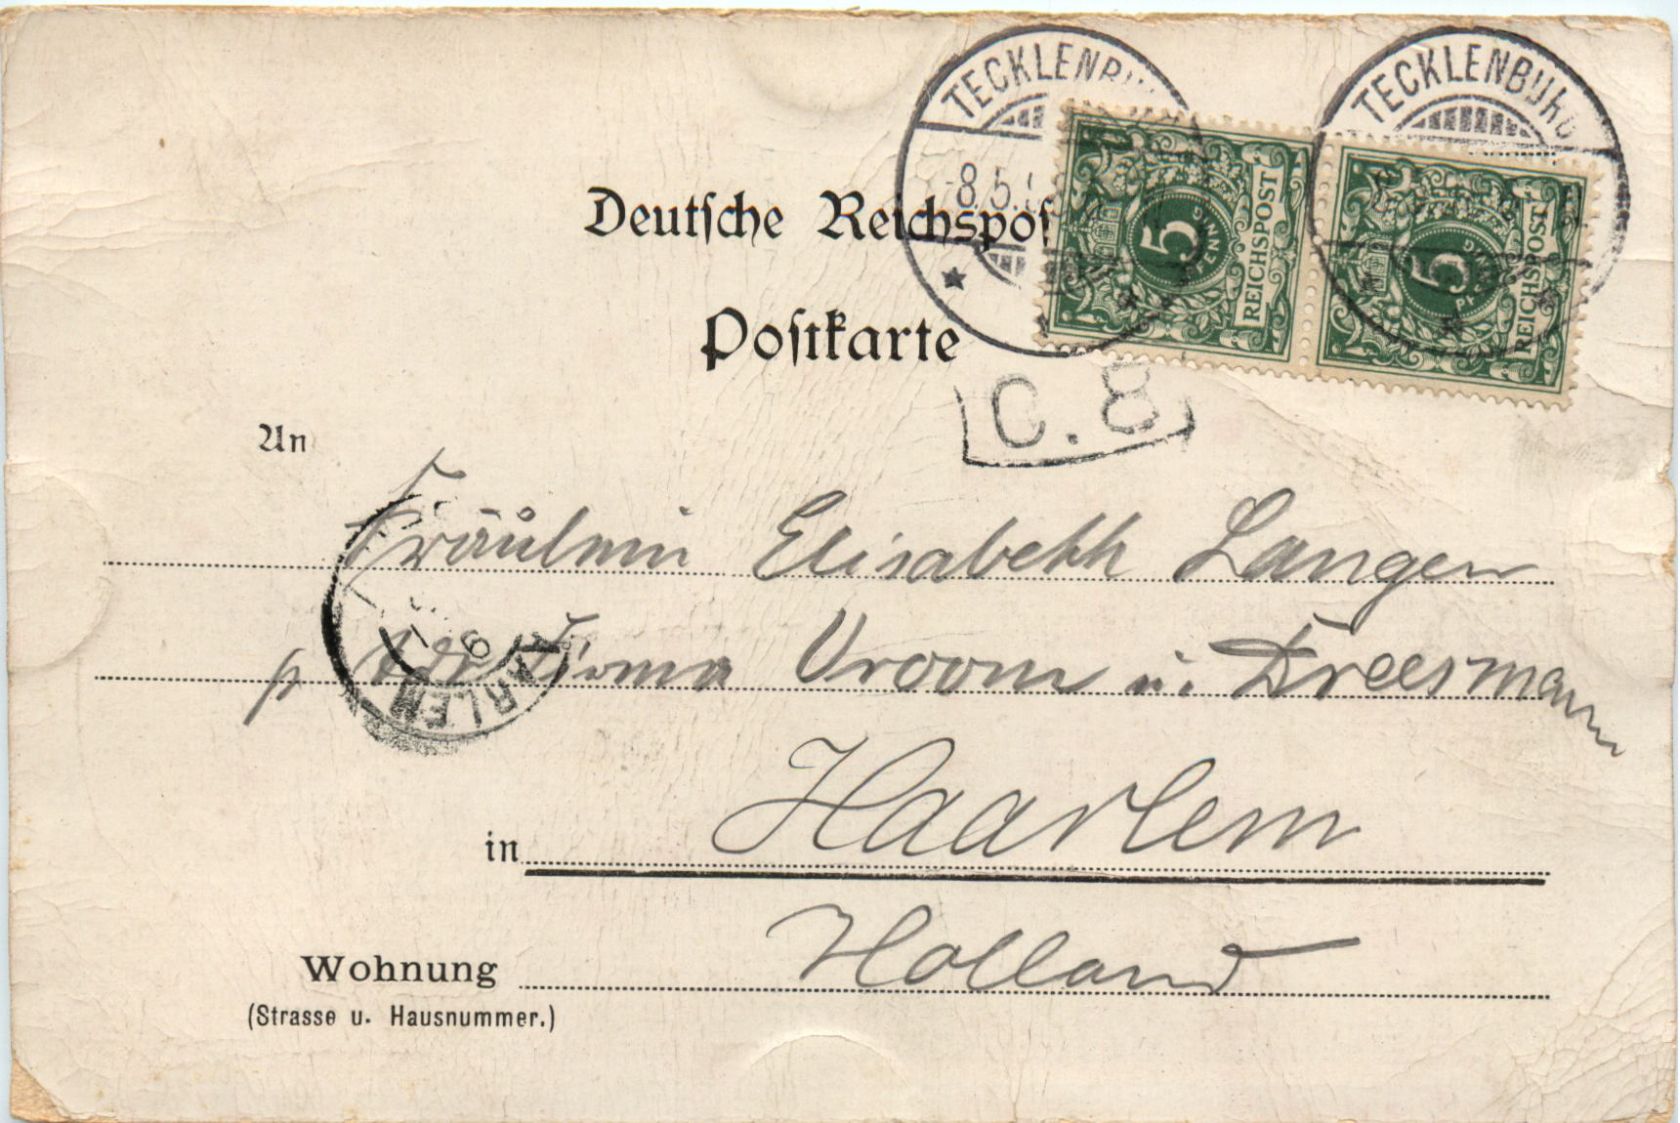 TECKLENBURG
TECKLENBURG
8.5.
Deutsche Reichspos
5
PFENNIG
REICHSPOST
5
PFENNIG
REICHSPOST
Postkarte
C. 8
An
Fräulein Elisabeth Langen
p Adr Firma Vroom u. Dreesmann
HAARLEM
9
in Haarlem
Holland
Wohnung
(Strasse u. Hausnummer.)